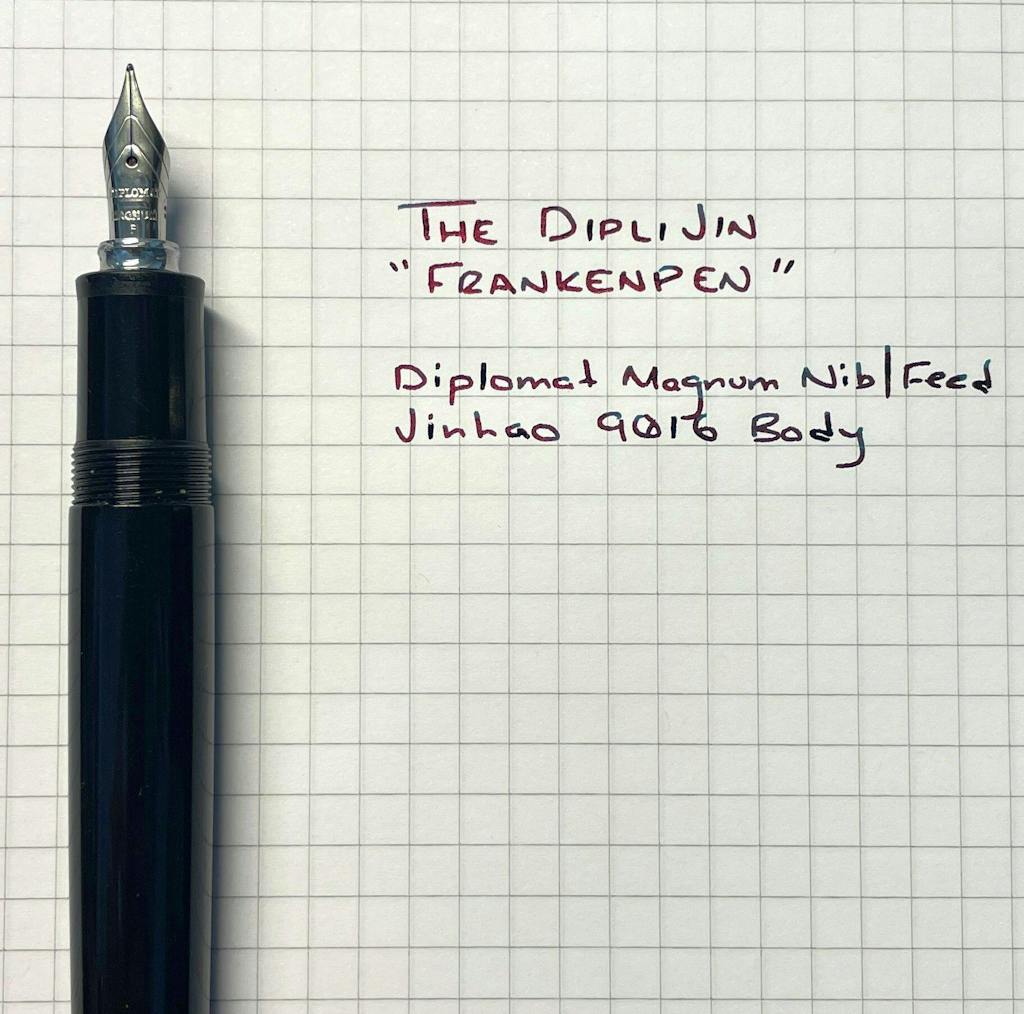 DIPLOMA
MAGNUM
F
THE DIPLIJIN
"FRANKENPEN"
Diplomat Magnum Nib/Feed
Jinhao 9016 Body